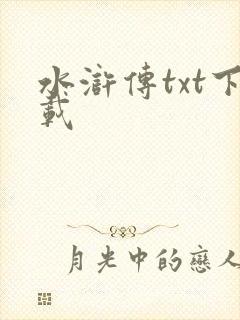 水滸傳txt下
載
月光中的戀人